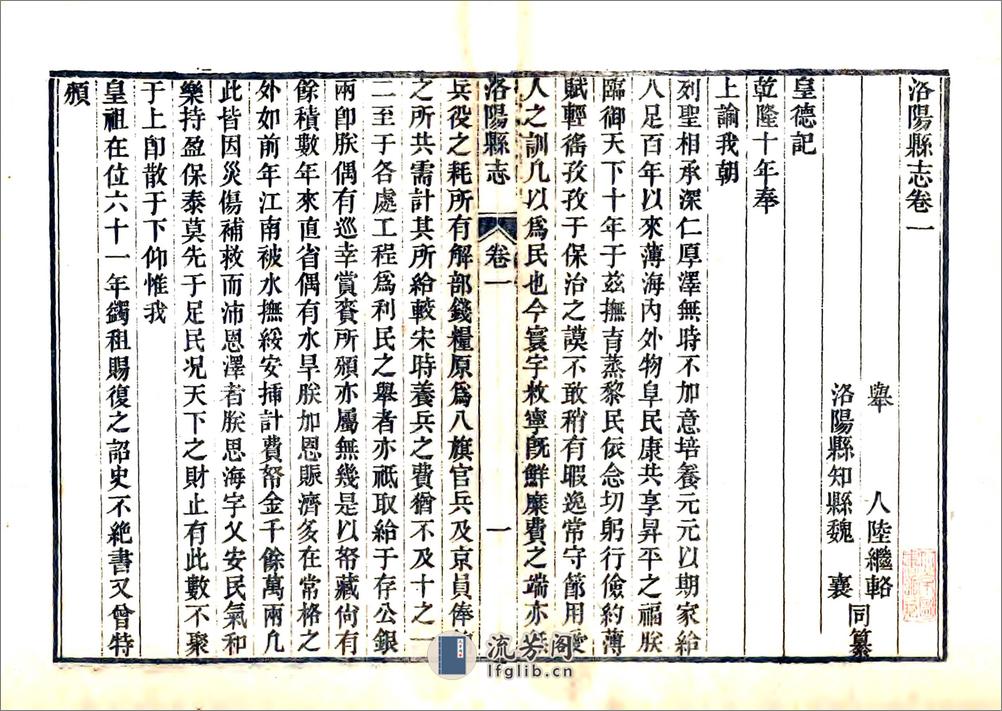 洛陽縣志卷一
舉 人陸繼輅
洛陽縣知縣魏 襄
同纂
皇德記
乾隆十年奉
上諭我朝
列聖相承深仁厚澤無時不加意培養元元以期家給
人足百年以來薄海內外物阜民康共享昇平之福朕
臨御天下十年于茲撫育蒸黎民依念切躬行儉約薄
賦輕徭孜孜于保治之謨不敢稍有暇逸常守節用愛
人之訓凡以爲民也今寰宇敉寧旣鮮糜費之端亦無
洛陽縣志
卷一
一
兵役之耗所有解部錢糧原爲八旗官兵及京員俸
之所共需計其所給較宋時養兵之費猶不及十之一
二至于各處工程爲利民之舉者亦祇取給于存公銀
兩卽朕偶有巡幸賞賚所頒亦屬無幾是以帑藏尙有
餘積數年來直省偶有水旱朕加恩賑濟多在常格之
外如前年江南被水撫綏安揷計費帑金千餘萬兩凡
此皆因災傷補救而沛恩澤者朕思海宇乂安民氣和
樂持盈保泰莫先于足民况天下之財止有此數不聚
于上卽散于下仰惟我
皇祖在位六十一年蠲租賜復之詔史不絶書又曾特
頒
流芳阁
lfglib.cn